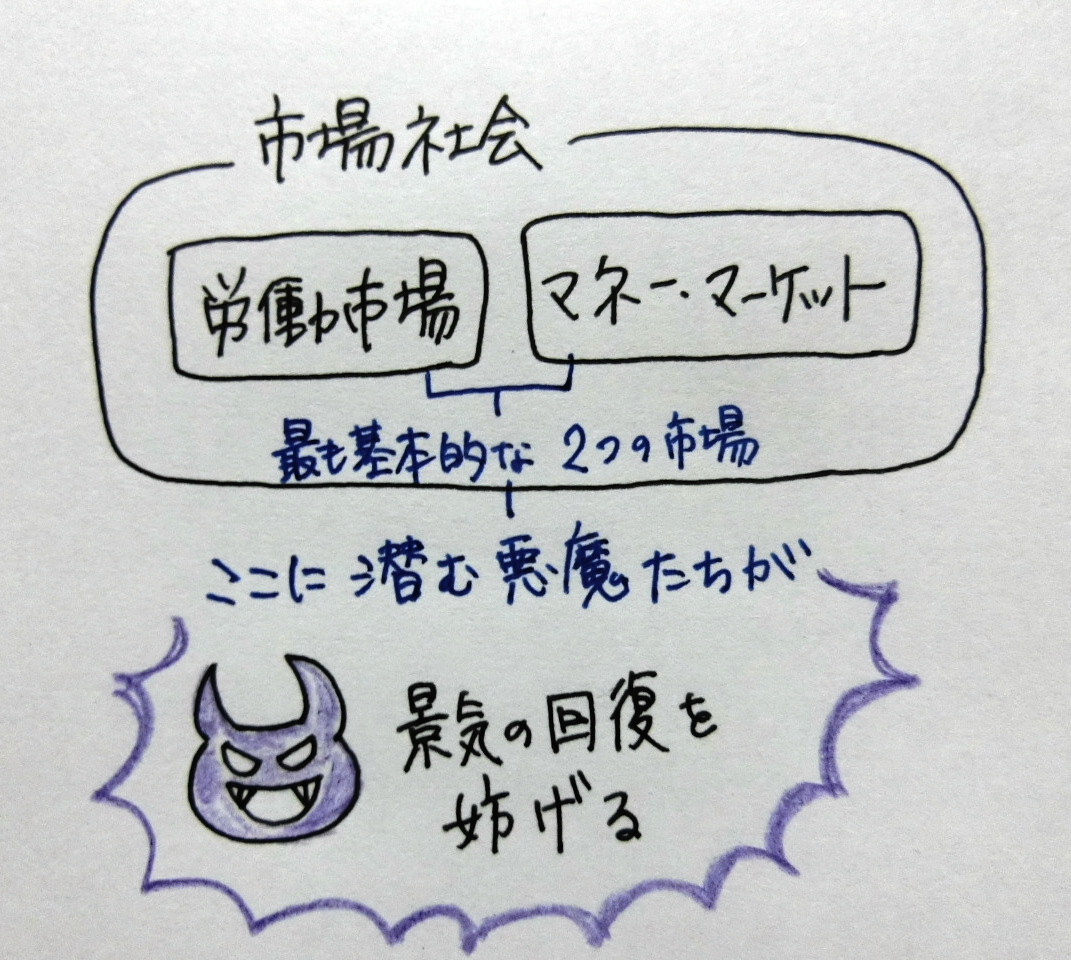 市場社会
労働市場
マネー・マーケット
最も基本的な2つの市場
ここに潜む悪魔たちが
景気の回復を
妨げる